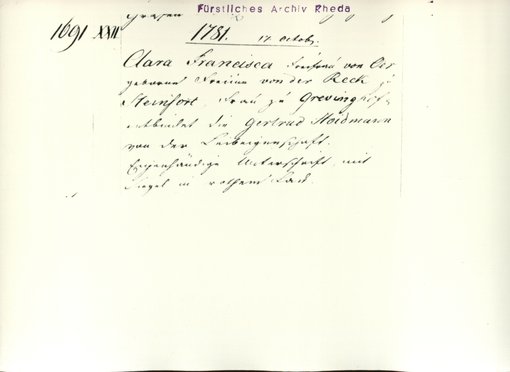 Fürstliches Archiv Rheda
1691 XXII
1781. 17. Octobr.
Clara Francisca Freifrau von
geborne Freiinn von der Reck zu
Steinfort, Frau zu Grevinghof
entbindet die Gertrud Heidmann
von der Leibeigenschaft.
Eigenhändige Unterschrift mit
Siegel in rothem Lack.